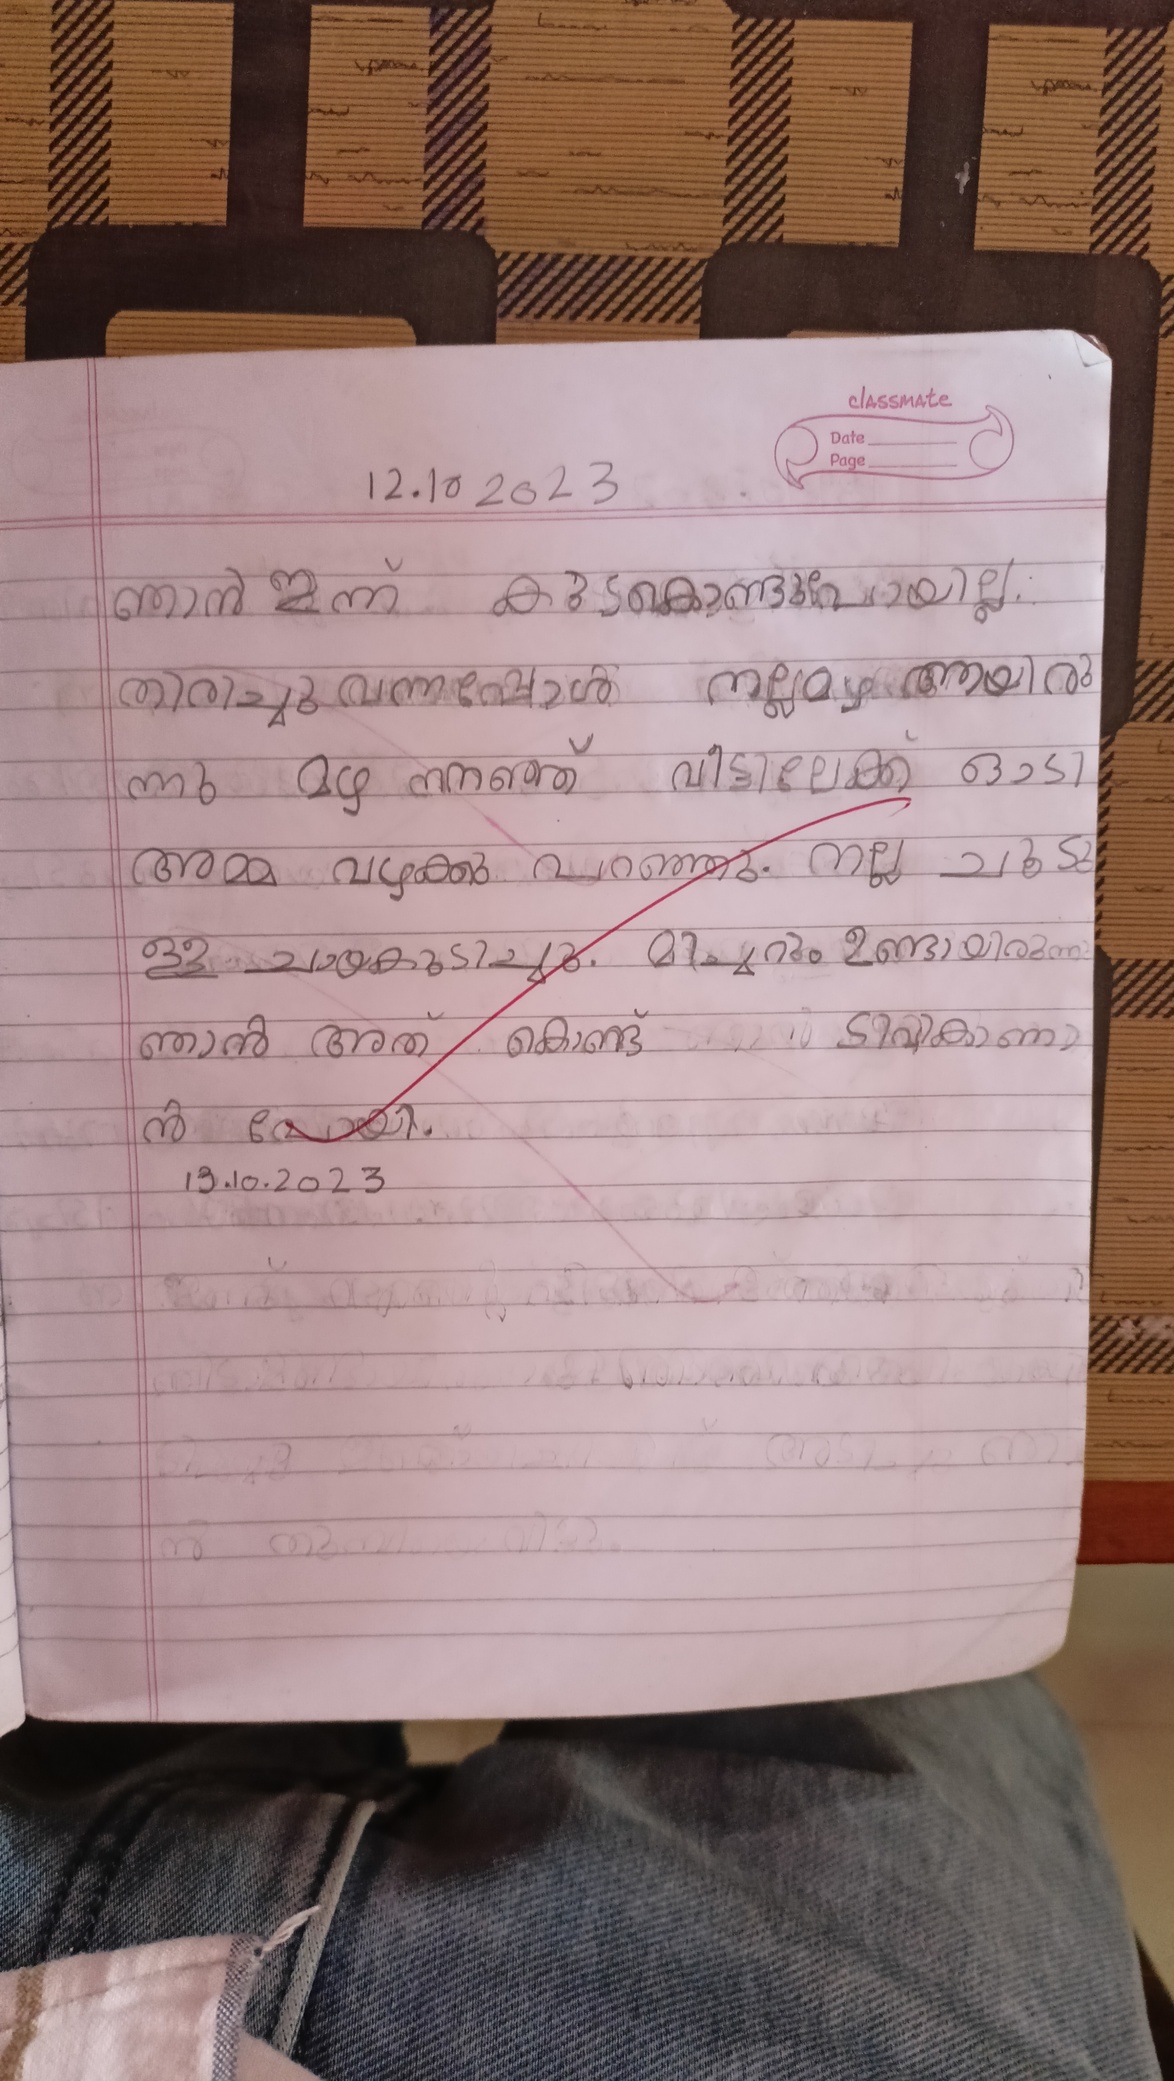 classmate
Date
Page
12.10 2023
ഞാൻ ഇന്ന് കുടകൊണ്ടുപോയില്ല.
തിരിച്ചു വന്നപ്പോൾ നല്ലമഴ ആയിരു
ന്നു മഴ നനഞ്ഞ് വീട്ടിലേക്ക് ഓടി
അമ്മ വഴക്കു പറഞ്ഞു. നല്ല ചുടു
ള്ള ചായകുടിച്ചു. മിച്ചറും ഉണ്ടായിരുന്നു
ഞാൻ അത് കൊണ്ട് ടിവികാണാ
ൻ പോയി.
13.10.2023